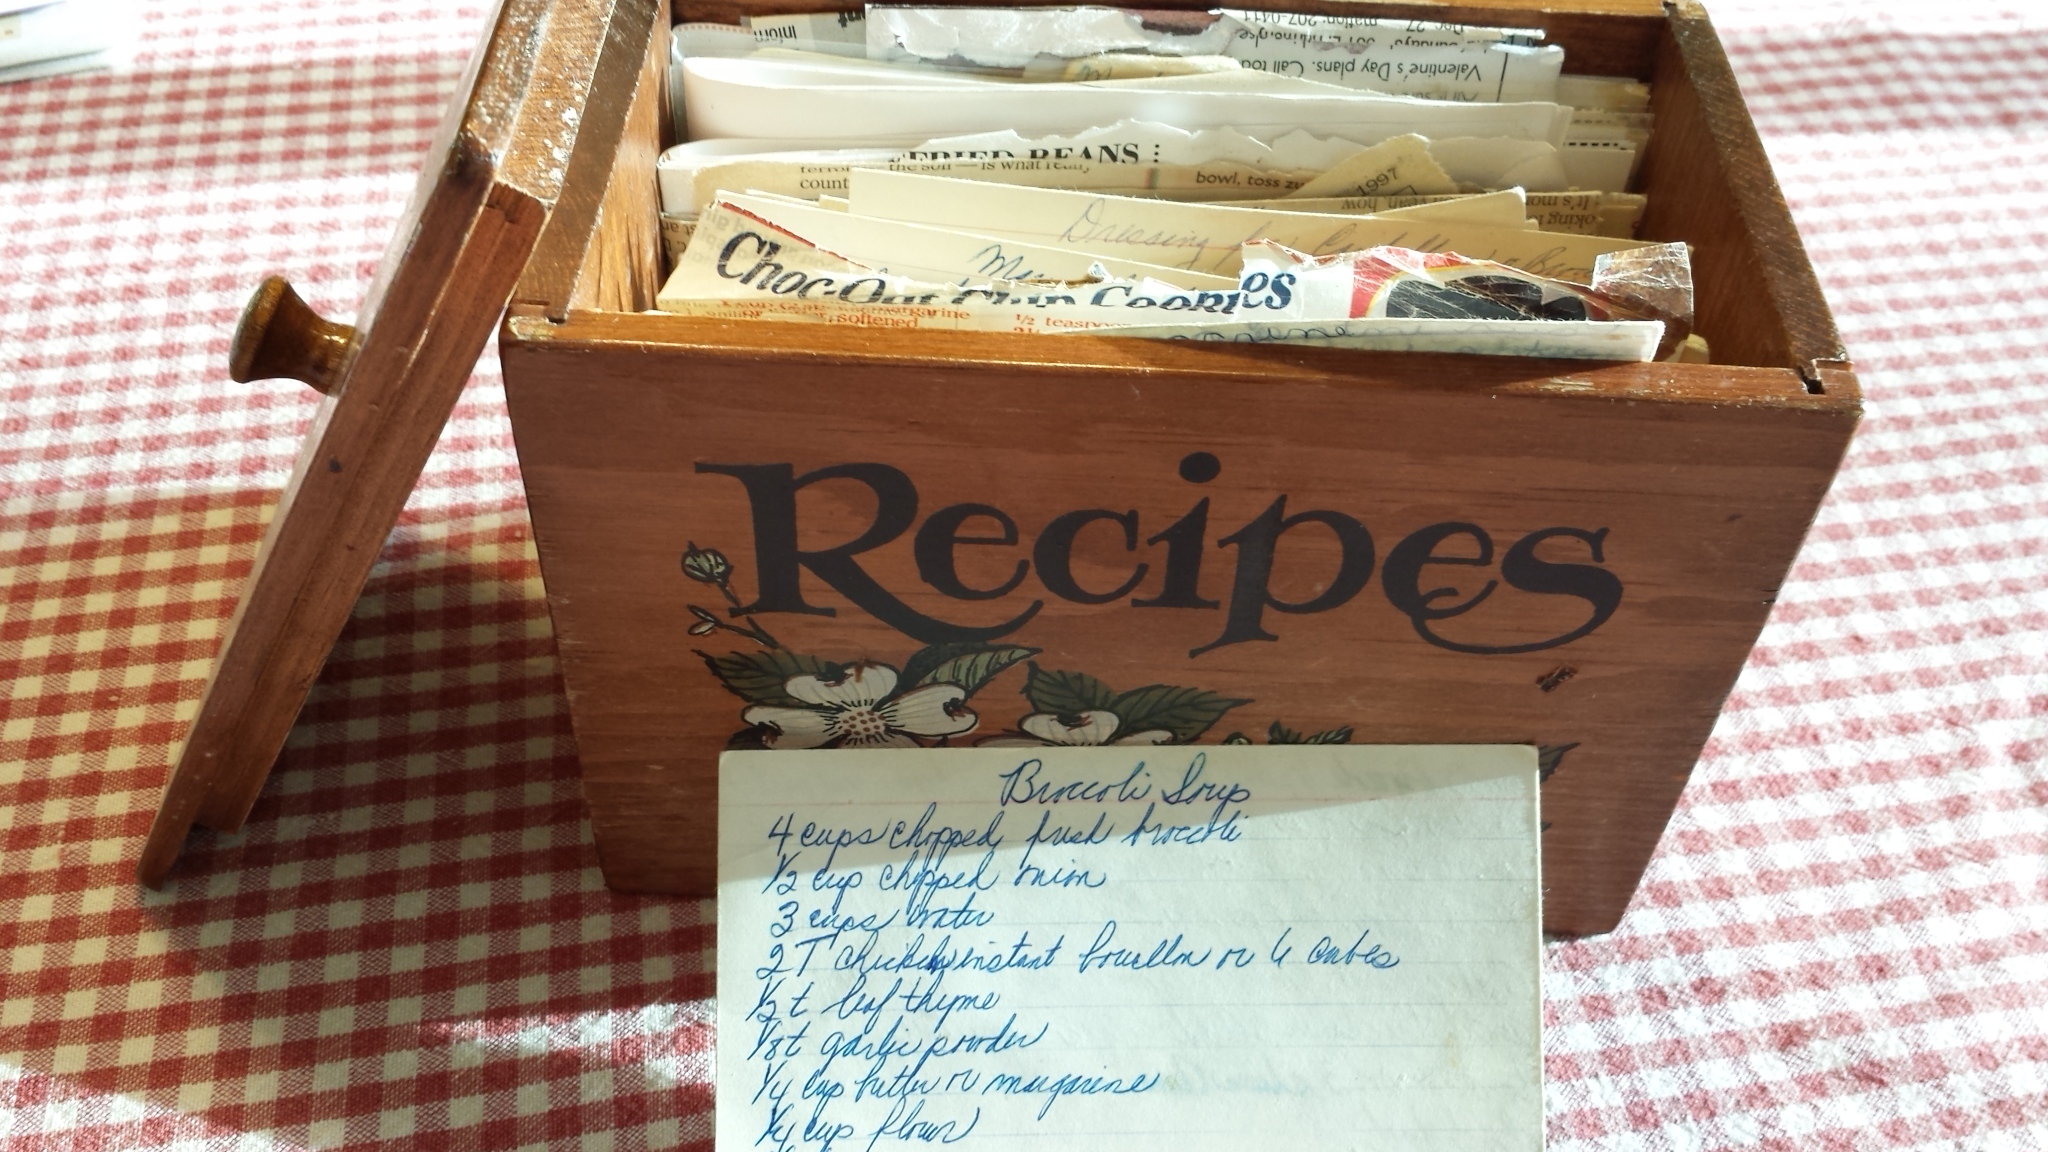 Valentine's Day plans. Call
FRIED BEANS
the soil — is what really
bowl, toss
1997
Dressing
Choc-Oat Chip Cookies
margarine
softened
1/2
Recipes
Broccoli Soup
4 cups chopped fresh broccoli
1/2 cup chopped onion
3 cups water
2 T chicken instant bouillon or 6 cubes
1/2 t leaf thyme
1/8 t garlic powder
1/4 cup butter or margarine
1/4 cup flour